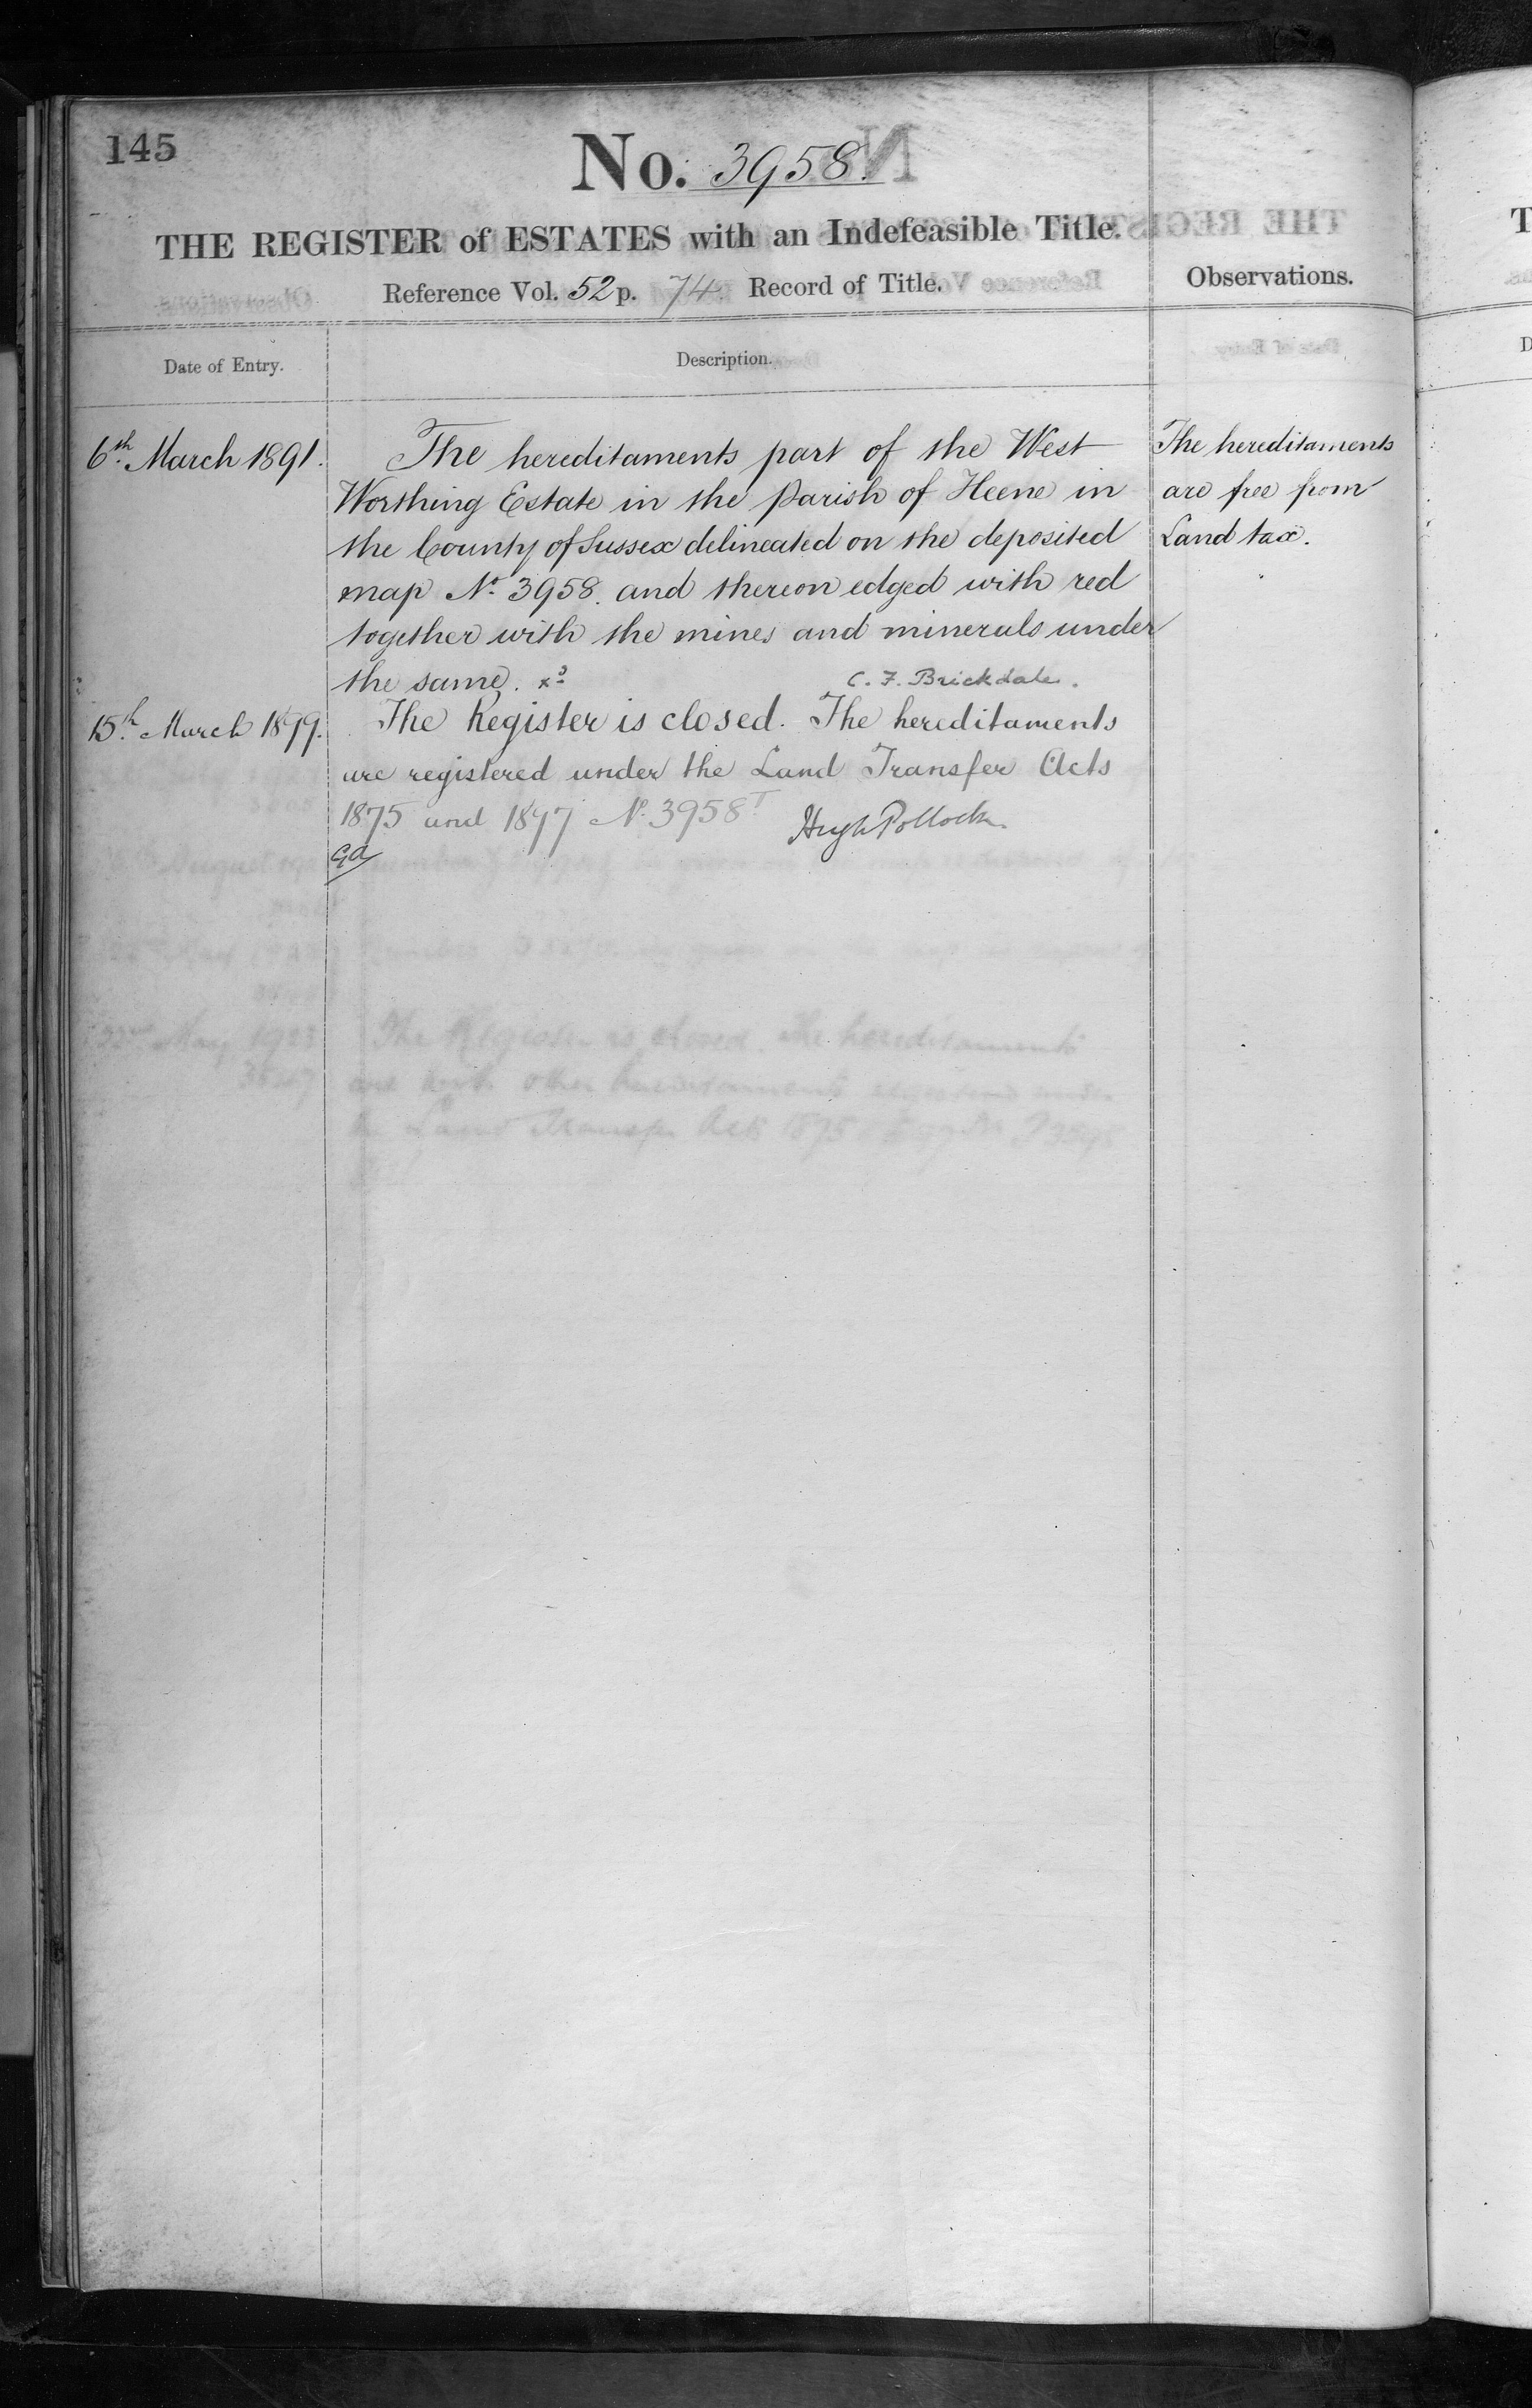 145
No. 3958.
THE REGISTER of ESTATES with an Indefeasible Title.
Reference Vol. 52 p. 74. Record of Title.
Observations.
Date of Entry.
Description.
6th March 1891.
The hereditaments part of the West
Worthing Estate in the Parish of Heene in
the County of Sussex delineated on the deposited
map No. 3958. and thereon edged with red
together with the mines and minerals under
the same.
C. F. Brickdale.
The hereditaments
are free from
Land tax.
15th March 1899.
The Register is closed. The hereditaments
are registered under the Land Transfer Acts
1875 and 1897 No. 3958T
Hugh Pollock